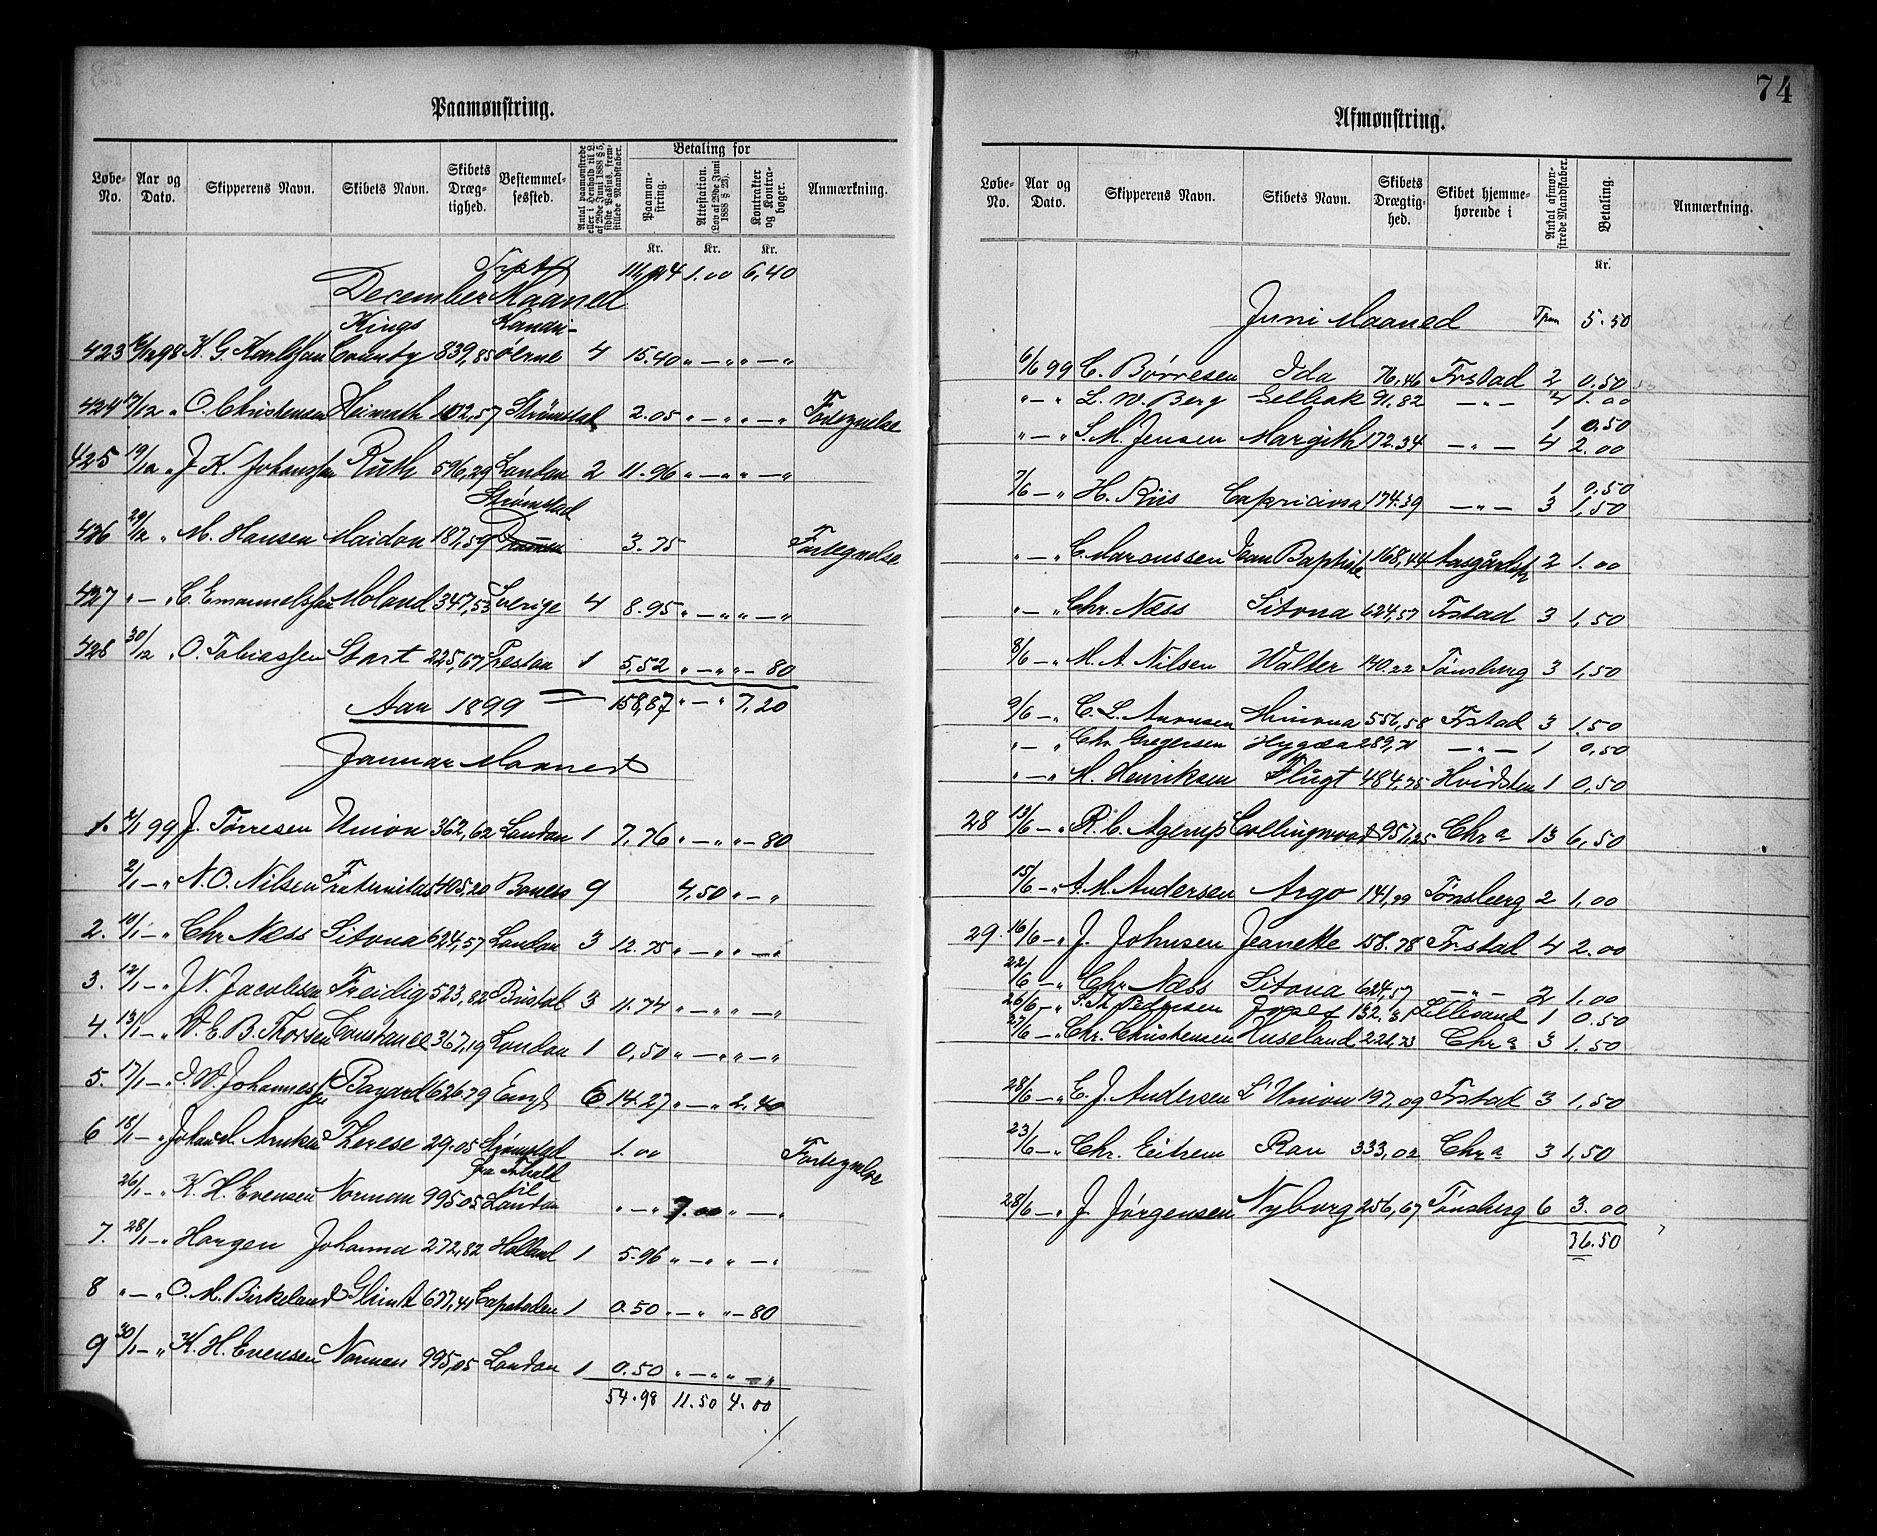 74
Paamønstring.
Løbe-No. Aar og Dato. Skipperens Navn. Skibets Navn. Skibets Dræg-tighed. Bestemmel-sessted. Antal paamønstrede eller i Henhold til L. af 29de Juni 1888 § 5, sidste Passus, frem-stillede Mandskaber. Betaling for Paamøn-string. Attestation. (Lov af 29de Juni 1888 § 23). Kontrakter og Kontra-bøger. Anmærkning.
Kr. Kr. Kr.
Trpt 111,94 1.00 6,40
December Maaned
Kings Kanari-
423 6/12 98 K. G. Karlssen County 839,85 öerne 4 15.40 „ — „ „ — „
424 17/12 „ O. Christensen Heimath 102,57 Strømstad 2.05 „ — „ „ — „ Fortegnelse
425 19/12 „ J. K. Johanssen Ruth 596,29 London 2 11.96 „ — „ „ — „
Strømstad
426 29/12 „ M. Hansen Maidon 187,59 3.75 Fortegnelse
427 „ — „ C. Emanuelssen Moland 347,53 Sverige 4 8.95 „ — „ „ — „
428 30/12 „ O. Tobiassen Start 225,67 Preston 1 5,52 „ — „ „ — 80
158,87 „ — „ 7,20
Aar 1899
Januar Maaned
1. 2/1 99 J. Tørresen Union 362,62 London 1 7,76 „ — „ „ — 80
2/1 — „ N. O. Nilsen Fraternitas 405,20 Boness 9 4,50 „ — „
2. 10/1 — „ Chr. Næss Sitona 624,57 London 3 12.75 „ — „ „ — „
3. 12/1 — „ J. N. Jacobsen Freidig 523,82 Bristol 3 11.74 „ — „ „ — „
4. 13/1 — „ W. E. B. Thorsen Constance 367,19 London 1 0,50 „ — „ „ — „
5. 17/1 — „ J. W. Johannessen Bayard 626.79 Engl 6 14.27 „ — „ 2,40
6 18/1 — „ Therese 29.05 Strømstad 1.00 Fortegnelse
fra til
26/1 — „ K. H. Evensen Norman 995,05 London „ — „ 7.00 „ — „
7. 28/1 — „ Horgen Johanna 272,82 Holland 1 5.96 „ — „ „ — „
8 „ — „ O. M. Birkeland Glimt 677,41 Capstaden 1 0.50 „ — „ „ — 80
9 30/1 — „ K. H. Evensen Norman 995,05 London 1 0.50 „ — „ „ — „
54.98 11.50 4.00
Afmønstring.
Løbe-No. Aar og Dato. Skipperens Navn. Skibets Navn. Skibets Drægtig-hed. Skibet hjemme-hørende i Antal afmøn-strede Mandskaber. Betaling. Anmærkning.
Kr.
Juni Maaned 5.50
6/6 99 C. Børresen Ida 76,46 Frstad 2 0.50
„ — „ L. W. Berg Selbak 91.82 — „ — 1.00
1 0.50
„ — „ S. M. Jensen Margith 172.34 — „ — 4 2.00
1 0.50
7/6 — „ H. Riis 174.39 — „ — 3 1,50
„ — „ C. Marcussen Jean Baptiste 168,44 2 1.00
„ — „ Chr. Næss Sitona 624,57 Frstad 3 1,50
8/6 — „ M. A. Nilsen Walter 140.22 Tønsberg 3 1,50
9/6 — „ C. L. Aronsen Minona 556,58 Frstad 3 1.50
„ — „ Chr. Gregersen Hygæa 289,71 — „ — 1 0,50
„ — „ M. Henriksen Flugt 484,75 Hvidsten 1 0,50
28 13/6 — „ R. C. Agerup Collingwood 957,25 Chr a 13 6,50
15/6 — „ A. M. Andersen Argo 141,99 Tønsberg 2 1,00
29. 16/6 — „ J. Johnsen Jeanette 158.78 Frstad 4 2.00
22/6 — „ Chr. Næss Sitona 624,57 — „ — 2 1.00
26/6 — „ S. Th. Pedersen 132.31 Lillesand 1 0.50
27/6 — „ Chr. Christensen Huseland 221,73 Chr a 3 1.50
28/6 — „ E. J. Andersen L'Union 197,09 Frstad 3 1,50
23/6 — „ Chr. Eitrem Ran 333,02 Chr a 3 1,50
28/6 — „ J. Jørgensen Nyborg 256,67 Tønsberg 6 3.00
36.50